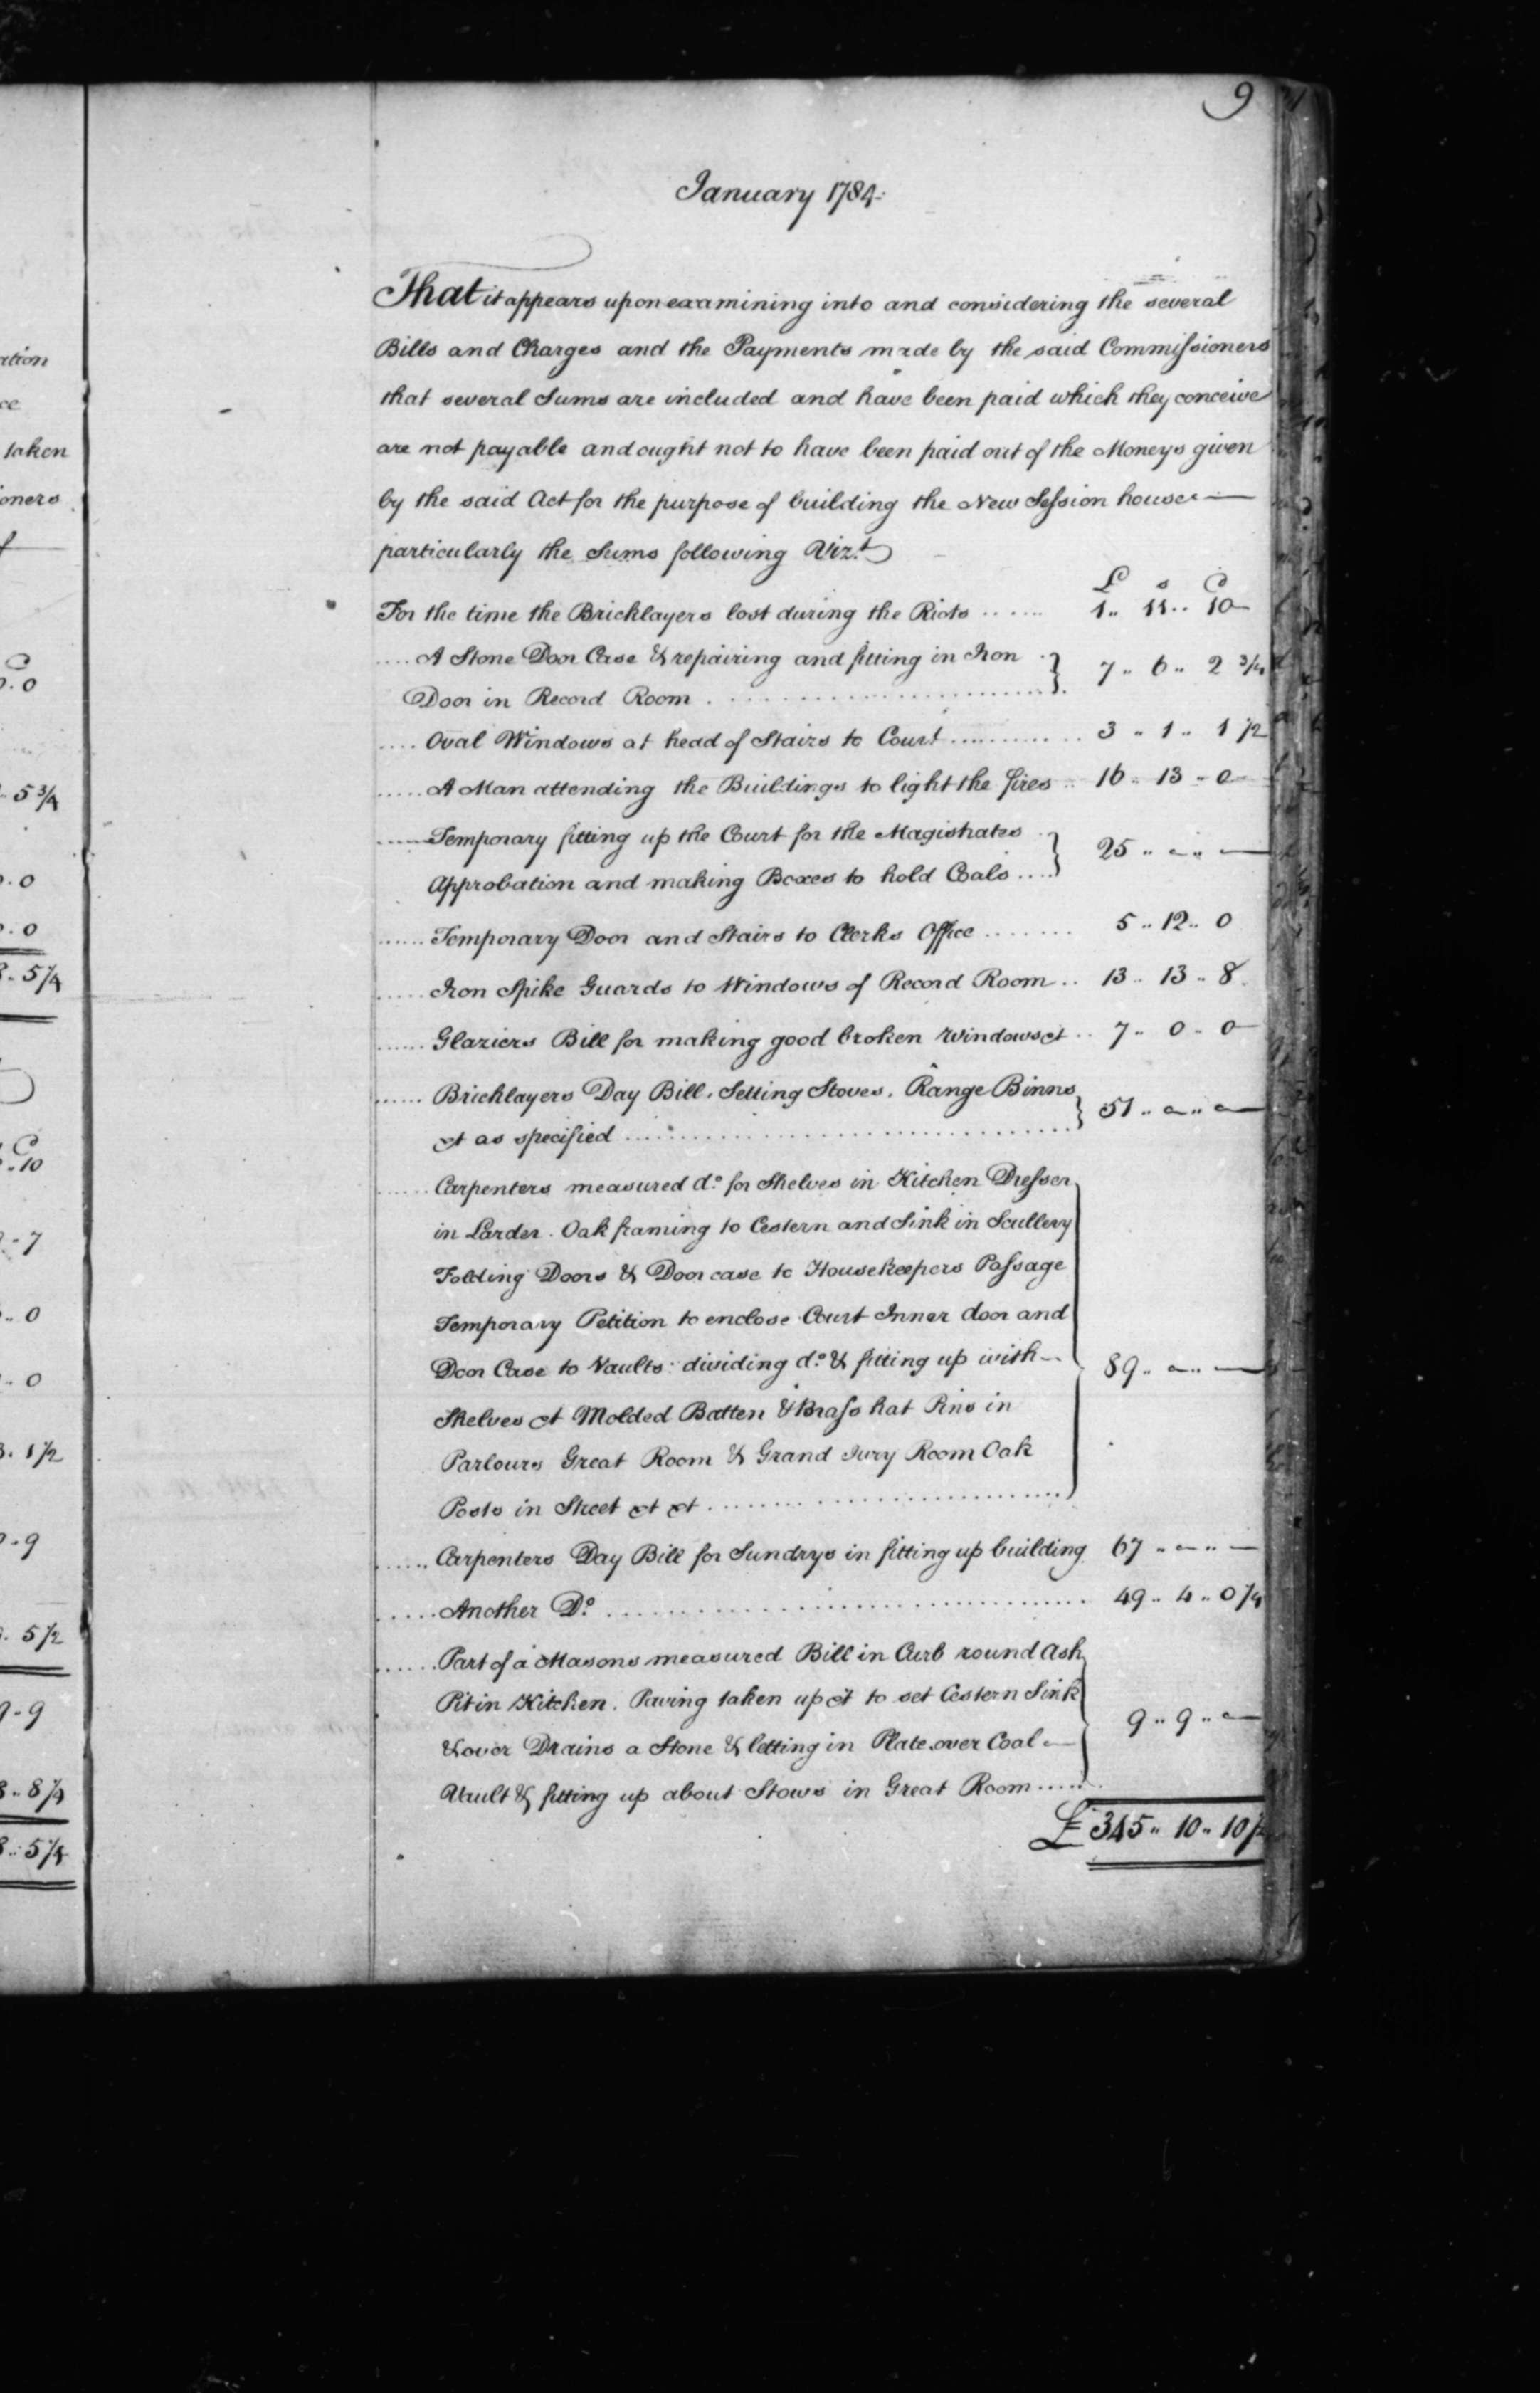 9
January 1784.
That it appears upon examining into and considering the several
Bills and Charges and the Payments made by the said Commissioners
that several Sums are included and have been paid which they conceive
are not payable and ought not to have been paid out of the Moneys given
by the said Act for the purpose of building the New Session house
particularly the Sums following Vizt.
£ s D
For the time the Bricklayers lost during the Riots ...... 1.. 11.. 10
.... A Stone Door Case & repairing and fitting in Iron
Door in Record Room ........ 7.. 6.. 2 3/4
.... Oval Windows at head of Stairs to Court ........ 3.. 1.. 1 1/2
..... A Man attending the Buildings to light the fires .. 16.. 13.. 0
..... Temporary fitting up the Court for the Magistrates
Approbation and making Boxes to hold Coals .... 25.. -.. -
...... Temporary Door and Stairs to Clerks Office ....... 5.. 12.. 0
..... Iron Spike Guards to Windows of Record Room .. 13.. 13.. 8
...... Glaziers Bill for making good broken Windows &t .. 7.. 0.. 0
...... Bricklayers Day Bill. Setting Stoves. Range Binns
&t as specified ........ 51.. -.. -
...... Carpenters measured do. for Shelves in Kitchen Dresser
in Larder. Oak framing to Cestern and Sink in Scullery
Folding Doors & Door case to Housekeepers Passage
Temporary Petition to enclose Court Inner door and
Door Case to Vaults dividing do. & fitting up with
Shelves &t Molded Batten & Brass hat Pins in
Parlours Great Room & Grand Jury Room Oak
Posts in Street &t &t ........ 89.. -.. -
...... Carpenters Day Bill for Sundrys in fitting up building 67.. -.. -
..... Another Do. ........ 49.. 4.. 0 1/4
...... Part of a Masons measured Bill in Curb round Ash
Pit in Kitchen. Paving taken up &t to set Cestern Sink
& over Drains a Stone & letting in Plate over Coal
Vault & fitting up about Stows in Great Room ..... 9.. 9.. -
£ 345.. 10.. 10 1/2
ation
taken
oners
5 3/4
.0
.0
5 1/4
D
10
7
0
0
1 1/2
9
5 1/2
9
8 1/4
5 1/4